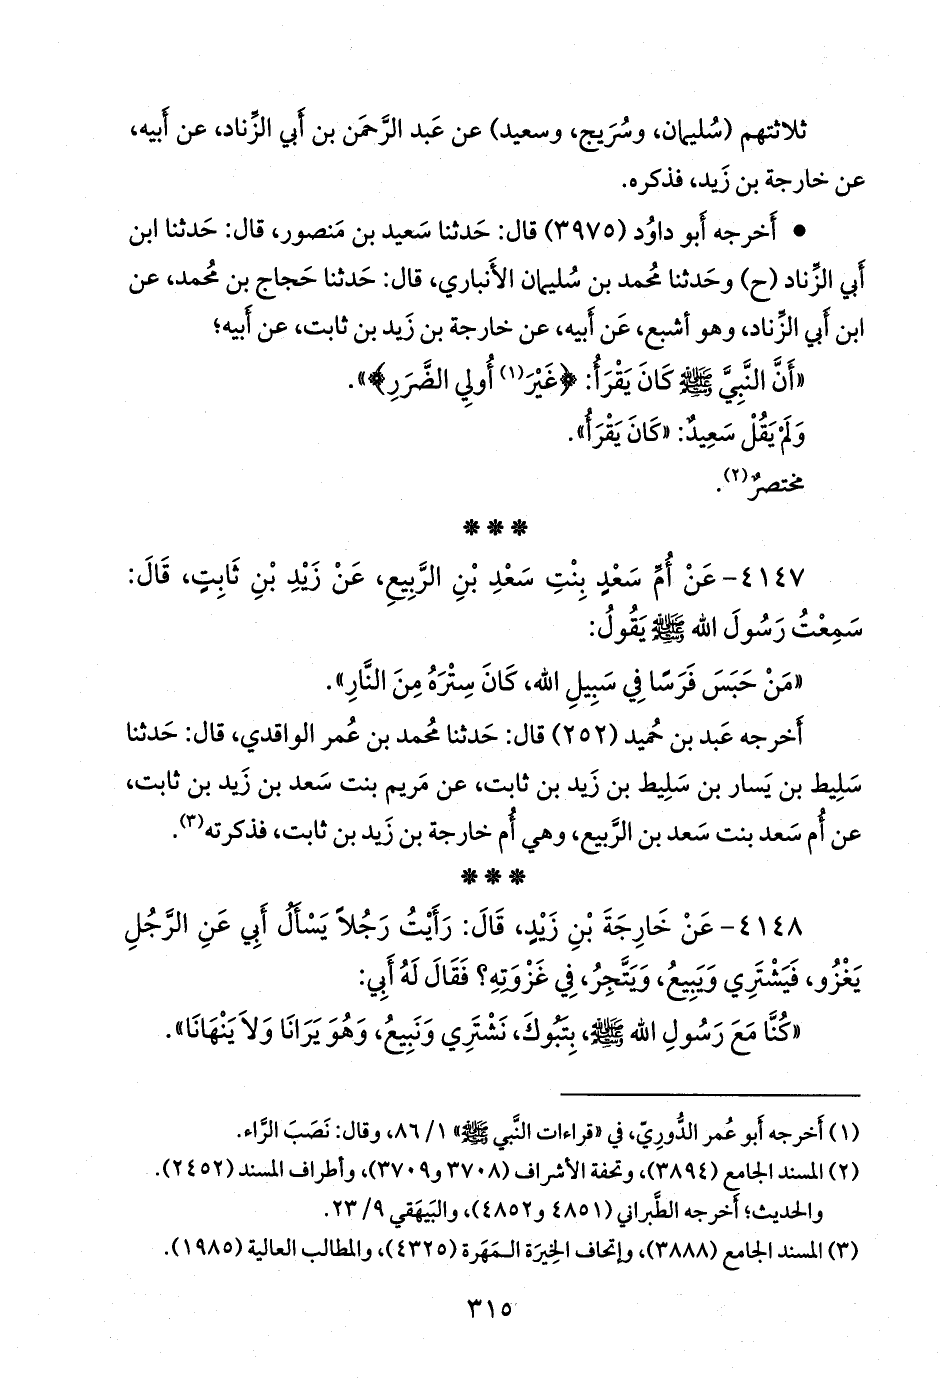 ثلاثتهم (سُليمان، وسُرَيج، وسعيد) عن عَبد الرَّحمَن بن أَبي الزِّناد، عن أَبيه،
عن خارجة بن زَيد، فذكره.
• أَخرجه أَبو داوُد (٣٩٧٥) قال: حَدثنا سَعيد بن مَنصور، قال: حَدثنا ابن
أَبي الزِّناد (ح) وحَدثنا مُحمد بن سُليمان الأَنباري، قال: حَدثنا حَجاج بن مُحمد، عن
ابن أَبي الزِّناد، وهو أشبع، عَن أَبيه، عن خارجة بن زَيد بن ثابت، عن أَبيه؛
«أَنَّ النَّبيَّ ﷺ كَانَ يَقْرَأُ: ﴿غَيْرَ(١) أُولِي الضَّرَرِ﴾».
وَلَمْ يَقُلْ سَعِيدٌ: «كَانَ يَقْرَأُ».
مختصرٌ(٢).
* * *
٤١٤٧- عَنْ أُمِّ سَعْدٍ بِنْتِ سَعْدِ بْنِ الرَّبِيعِ، عَنْ زَيْدِ بْنِ ثَابِتٍ، قَالَ:
سَمِعْتُ رَسُولَ الله ﷺ يَقُولُ:
«مَنْ حَبَسَ فَرَسًا فِي سَبِيلِ الله، كَانَ سِتْرَهُ مِنَ النَّارِ».
أَخرجه عَبد بن حُميد (٢٥٢) قال: حَدثنا مُحمد بن عُمر الواقدي، قال: حَدثنا
سَلِيط بن يَسار بن سَلِيط بن زَيد بن ثابت، عن مَريم بنت سَعد بن زَيد بن ثابت،
عن أُم سَعد بنت سَعد بن الرَّبيع، وهي أُم خارجة بن زَيد بن ثابت، فذكرته(٣).
* * *
٤١٤٨- عَنْ خَارِجَةَ بْنِ زَيْدٍ، قَالَ: رَأَيْتُ رَجُلاً يَسْأَلُ أَبِي عَنِ الرَّجُلِ
يَغْزُو، فَيَشْتَرِي وَيَبِيعُ، وَيَتَّجِرُ، فِي غَزْوَتِهِ؟ فَقَالَ لَهُ أَبِي:
«كُنَّا مَعَ رَسُولِ الله ﷺ، بِتَبُوكَ، نَشْتَرِي وَنَبِيعُ، وَهُوَ يَرَانَا وَلاَ يَنْهَانَا».
(١) أَخرجه أَبو عمر الدُّورِيّ، في «قراءات النَّبي ﷺ» ١/ ٨٦، وقال: نَصَبَ الرَّاء.
(٢) المسند الجامع (٣٨٩٤)، وتحفة الأشراف (٣٧٠٨ و٣٧٠٩)، وأطراف المسند (٢٤٥٢).
والحديث؛ أَخرجه الطَّبراني (٤٨٥١ و٤٨٥٢)، والبَيهَقي ٩/ ٢٣.
(٣) المسند الجامع (٣٨٨٨)، وإتحاف الخِيرَة الـمَهَرة (٤٣٢٥)، والمطالب العالية (١٩٨٥).
٣١٥